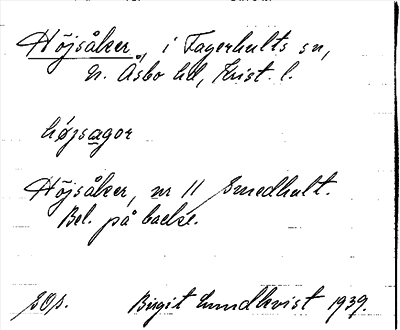 Höjsåker, i Fagerhults sn,
N. Åsbo hd, Krist. l.
högsagor
Höjsåker, nr 11 Smedhult.
Bel. på backe.
Birgit Lundkvist 1939.